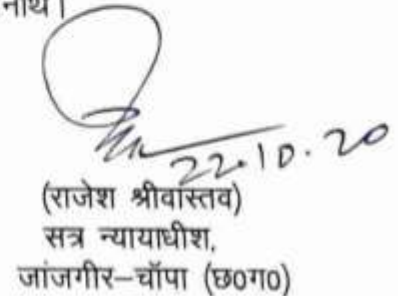 नाथ।
22.10.20
(राजेश श्रीवास्तव)
सत्र न्यायाधीश,
जांजगीर–चॉपा (छ0ग0)